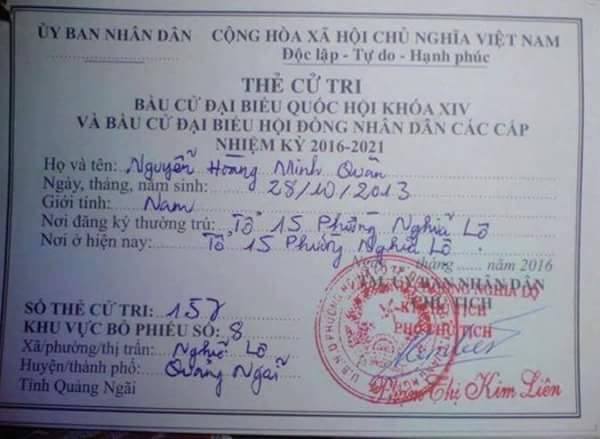 ỦY BAN NHÂN DÂN CỘNG HÒA XÃ HỘI CHỦ NGHĨA VIỆT NAM
Độc lập - Tự do - Hạnh phúc
THẺ CỬ TRI
BẦU CỬ ĐẠI BIỂU QUỐC HỘI KHÓA XIV
VÀ BẦU CỬ ĐẠI BIỂU HỘI ĐỒNG NHÂN DÂN CÁC CẤP
NHIỆM KỲ 2016-2021
Họ và tên: Nguyễn Hoàng Minh Quân
Ngày, tháng, năm sinh: 28/10/2013
Giới tính: Nam
Nơi đăng ký thường trú: Tổ 15 Phường Nghĩa Lộ
Nơi ở hiện nay: Tổ 15 Phường Nghĩa Lộ
Ngày tháng ...... năm 2016
TM. ỦY BAN NHÂN DÂN
CHỦ TỊCH
KT. CHỦ TỊCH
PHÓ CHỦ TỊCH
SỐ THẺ CỬ TRI: 157
KHU VỰC BỎ PHIẾU SỐ: 8
Xã/phường/thị trấn: Nghĩa Lộ
Huyện/thành phố: Quảng Ngãi
Tỉnh Quảng Ngãi
Phạm Thị Kim Liên